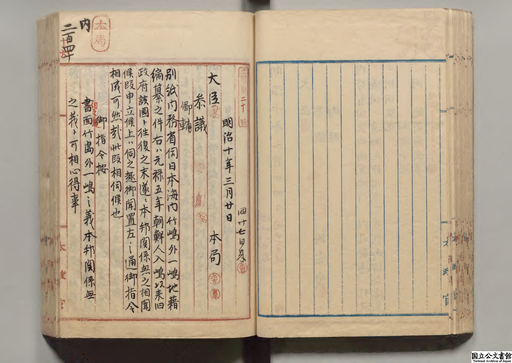 内
二百四十
明治十年三月廿日
本局
大臣
参議
卿輔
別紙内務省伺日本海内竹嶋外一嶋地籍
編纂之件右ハ元禄五年朝鮮人入嶋以来旧
政府該国ト往復之末遂ニ本邦関係無之相聞
候段申立候上ハ伺之趣御聞置左之通御指令
相成可然哉此段相伺候也
御指令按
書面竹島外一嶋之義本邦関係無
之義ト可相心得事
国立公文書館
National Archives of Japan